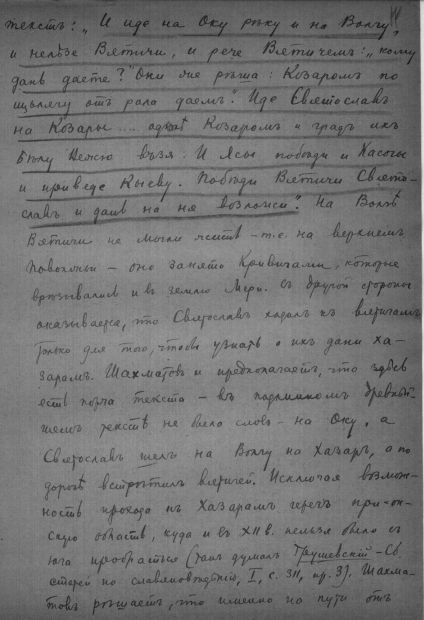 текстъ: „И иде на Оку рѣку и на Волгу,
и налѣзе Вятичи, и рече Вятичемъ: „кому
дань даете?" Они же рѣша: Козаромъ по
щьлягу отъ рала даемъ". Иде Святославъ
на Козары .... одолѣ Козаромъ и градъ ихъ
Бѣлу Вежю възя. И Ясы побѣди и Касогы
и приведе Кыеву. Побѣди Вятичи Свято-
славъ и дань на ня возложи". На Волгѣ
Вятичи не могли жить – т.е. на верхнемъ
Поволжьи – оно занято Кривичами, которые
врѣзывались и въ землю Мери. Съ другой стороны
оказывается, что Святославъ ходилъ къ вятичамъ
только для того, чтобы узнать о их дани ха-
зарамъ. Шахматовъ и предполагаетъ, что здѣсь
есть порча текста – въ подлинномъ древнѣй-
шемъ текстѣ не было слов – на Оку, а
Святославъ шелъ на Волгу на Хазаръ, а по
дорогѣ встрѣтилъ вятичей. Исключая возмож-
ность прохода къ Хазарамъ черезъ при-он-
скую область, куда и въ XII в. нельзя было съ
юга пробраться (такъ думалъ Грушевскій – Сб.
статей по славяновѣдѣнію, I, с. 311, пр. 3). Шахма-
товъ рѣшаетъ, что именно на пути отъ